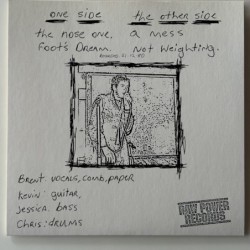 one side
the nose one.
Foot's Dream.
the other side
a mess
Not Weighting.
Brent: vocals, comb, paper
Kevin: guitar,
Jessica: bass
Chris: drums
RAW POWER
RECORDS